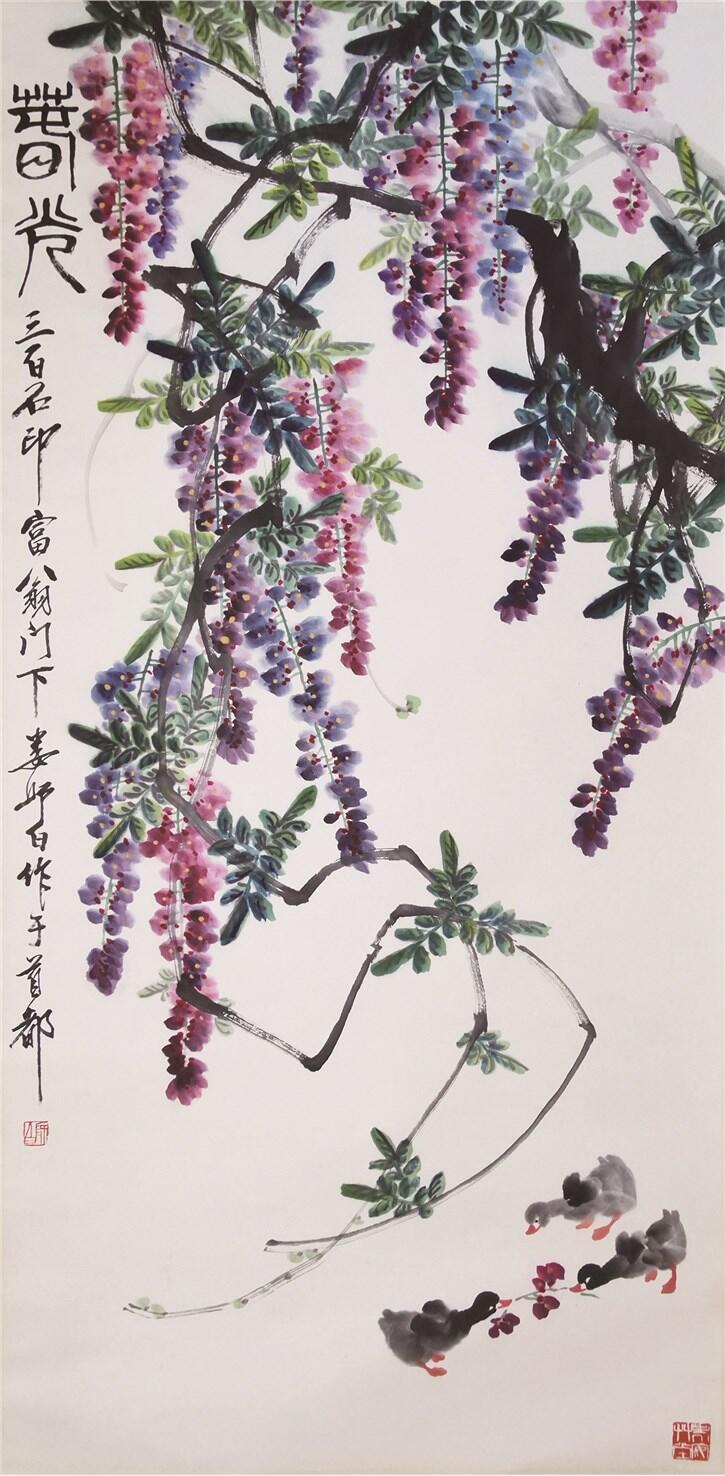 春光
三百石印富翁门下娄师白作于首都